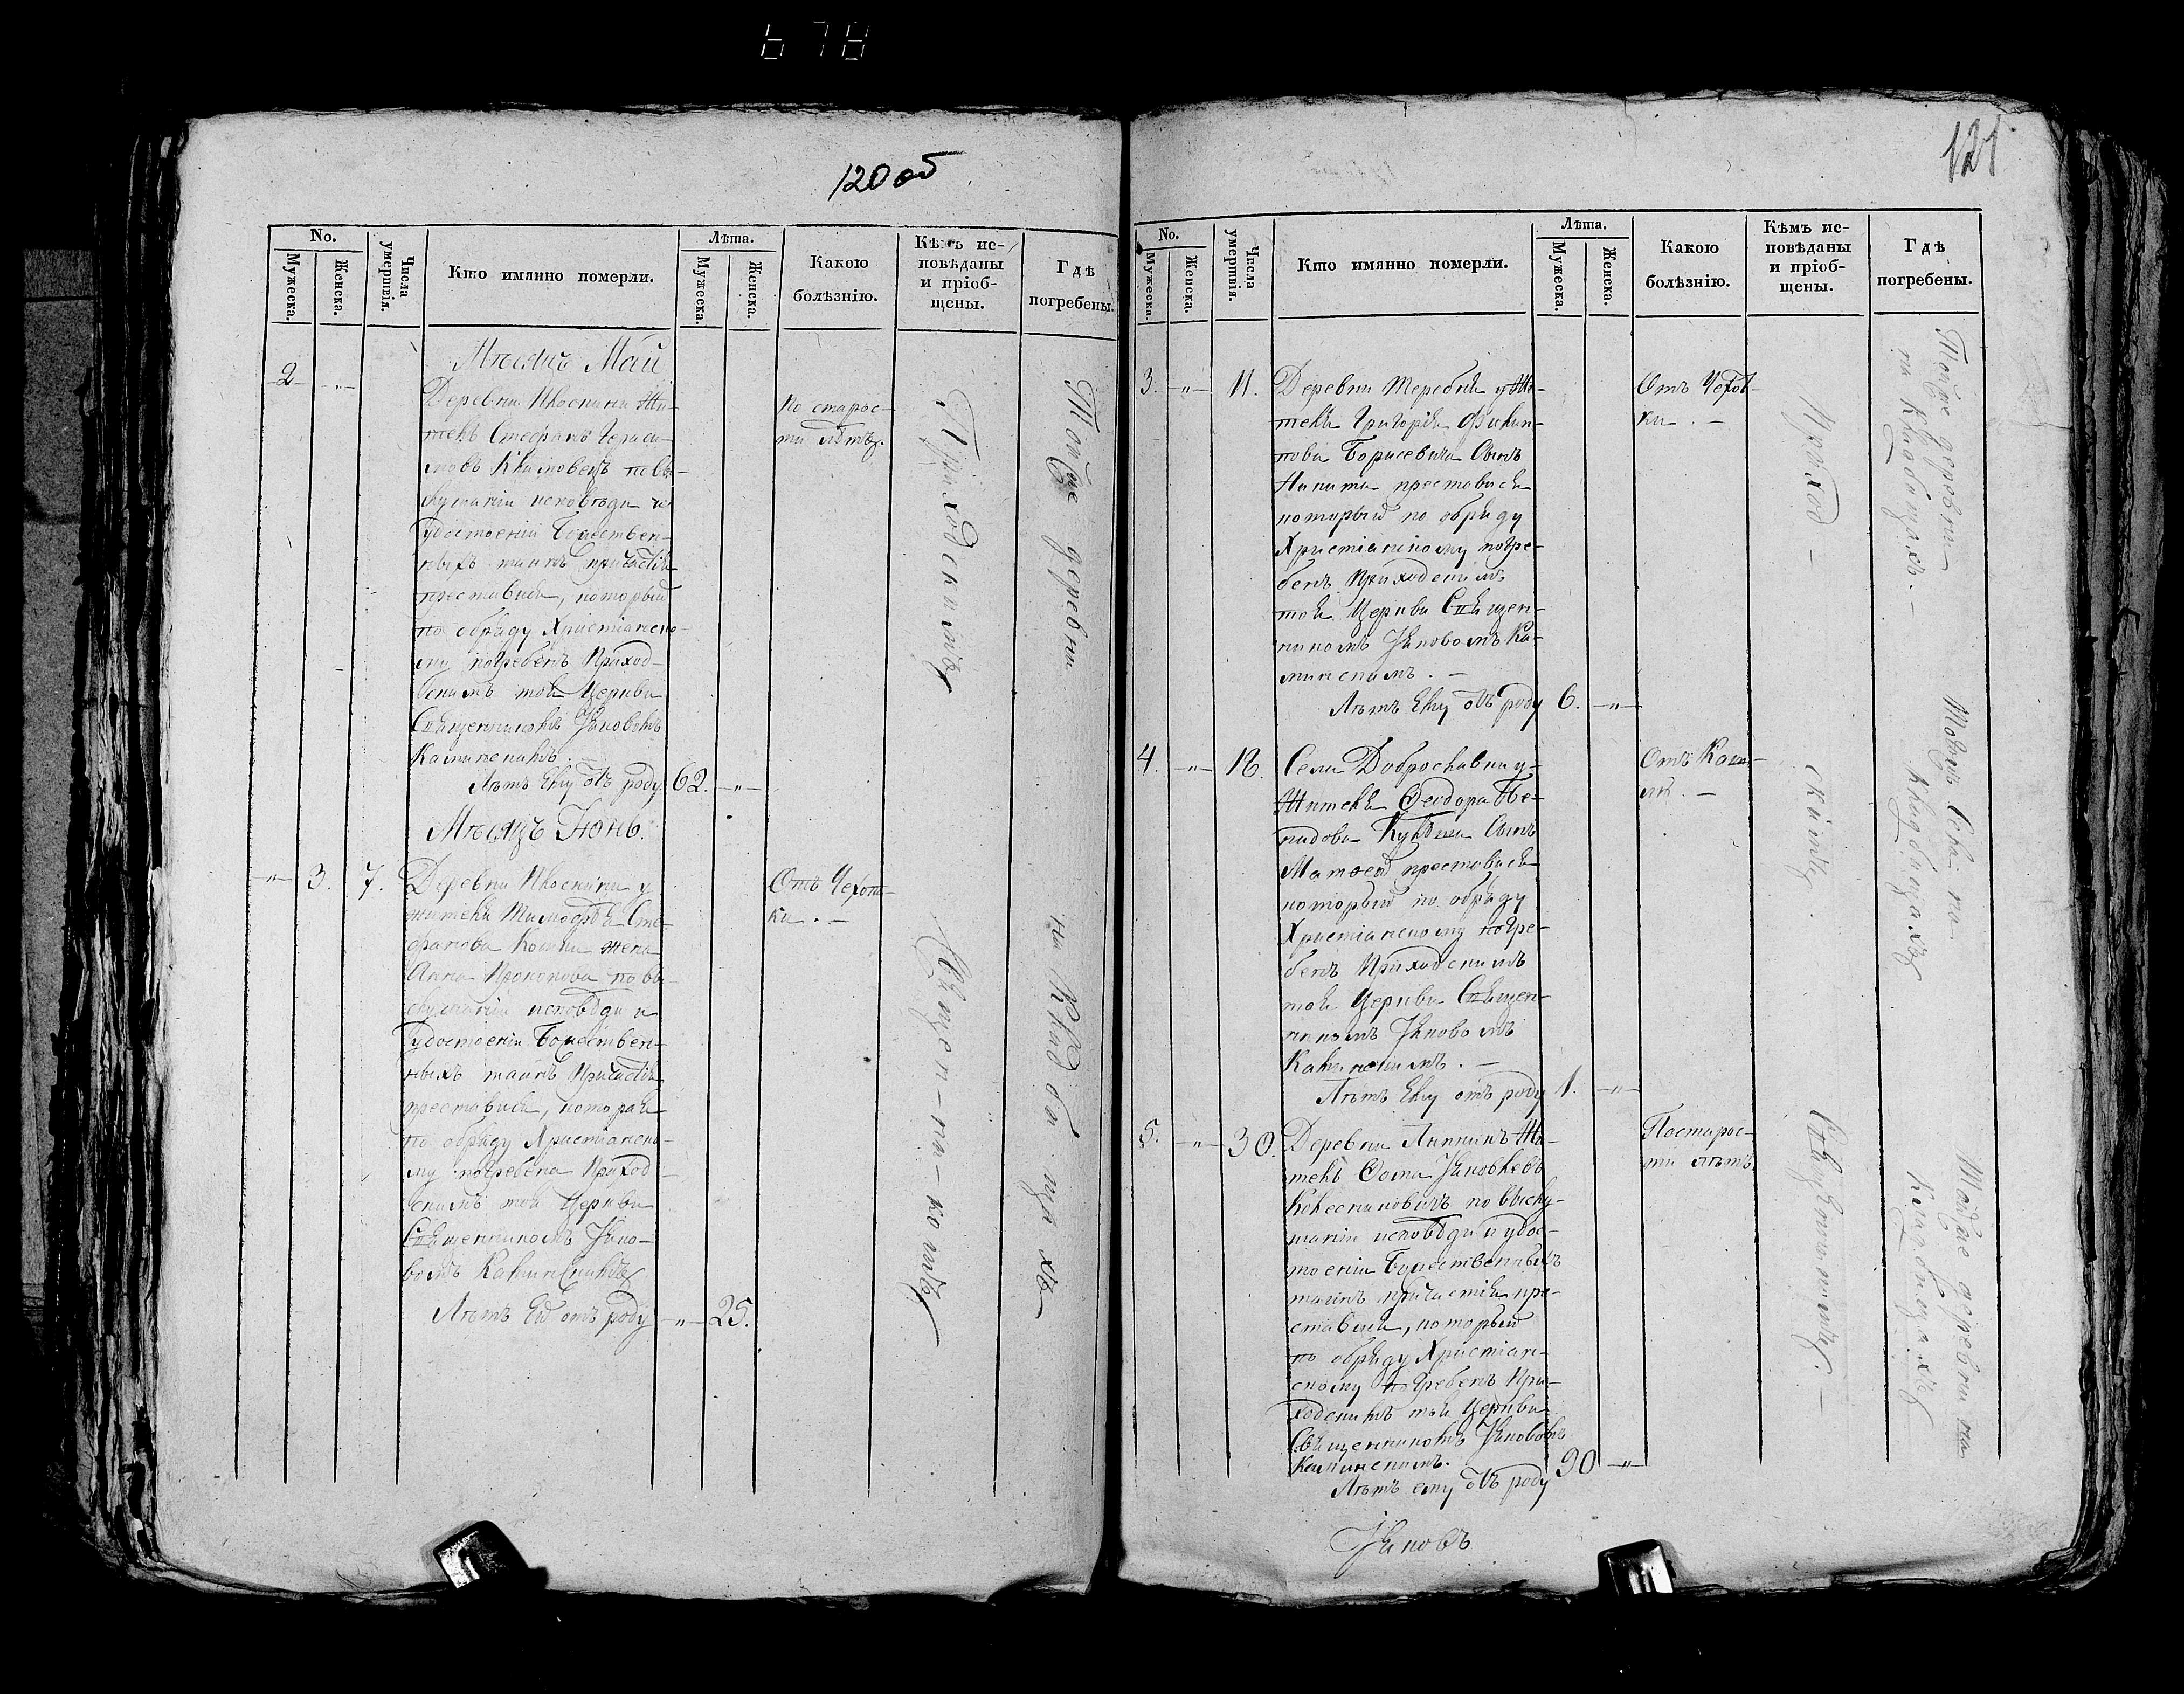 678
120 об
No.
Мужеска.
Женска.
Числа умертвія.
Кто имянно померли.
Лѣта.
Мужеска.
Женска.
Какою
болѣзнію.
Кѣмъ ис-
повѣданы
и пріоб-
щены.
Гдѣ
погребены.
Мѣсяцъ Май
2 - " -
Деревни Плоскини Жи-
тель Стефанъ Гераси-
мовъ Климовецъ по вы-
слушаніи исповѣди и
Удостоеніи Божествен-
ныхъ таинъ причастія
преставися, который
по обряду Христіанско-
му погребенъ Приход-
скимъ тоя Церкви
Сщ҃енникомъ Іаковомъ
Каминскимъ.
Лѣтъ Ему отъ роду 62. - " -
По старос-
ти лѣтъ.
Мѣсяцъ Іюнь.
- " - 3. 7.
Деревни Плоскини у
жителя Тимофея Сте-
фанова жена
Анна Прокопова по вы-
слушаніи исповѣди и
Удостоеніи Божествен-
ныхъ таинъ Причастія
преставися, которая
по обряду Христіанско-
му погребена Приход-
скимъ тоя Церкви
Священникомъ Іако-
вомъ Каминскимъ
Лѣтъ Ей отъ роду - " - 25.
Отъ Чехот-
ки. -
Приходскимъ
Священникомъ
Той же деревни
на Кладбищахъ
121
No.
Мужеска.
Женска.
Числа умертвія.
Кто имянно померли.
Лѣта.
Мужеска.
Женска.
Какою
болѣзнію.
Кѣмъ ис-
повѣданы
и пріоб-
щены.
Гдѣ
погребены.
3. - " - 11.
Деревни Теребня у Жи-
теля Григорія Филип-
пова Борисевича Сынъ
Никита преставися
который по обряду
Христіанскому погре-
бенъ Приходскимъ
тоя Церкви Священ-
никомъ Іаковомъ Ка-
минскимъ. -
Лѣтъ Ему отъ роду 6. - " -
Отъ Чехот-
ки. -
Той же деревни
на Кладбищахъ. -
4. - " - 12.
Села Доброславки у
Жителя Ѳеодора
Сынъ
Матѳей преставися
который по обряду
Христіанскому погре-
бенъ Приходскимъ
тоя Церкви Священ-
никомъ Іаковомъ
Каминскимъ. -
Лѣтъ Ему отъ роду 1. - " -
Отъ Каш-
ля. -
Тогожъ Села на
Кладбищахъ
5. - " - 30.
Деревни Жи-
тель Ѳома Іаковлевъ
Колесниковичъ по выслу-
шаніи исповѣди и удос-
тоеніи Божественныхъ
таинъ причастія пре-
ставися, который
по обряду Христіан-
скому погребенъ При-
ходскимъ тоя Церкви
Священникомъ Іаковомъ
Каминскимъ.
Лѣтъ ему отъ роду 90 - " -
По старос-
ти лѣтъ
Приход -
скимъ.
Священникомъ. -
Той же деревни на
Кладбищахъ
Іаковъ